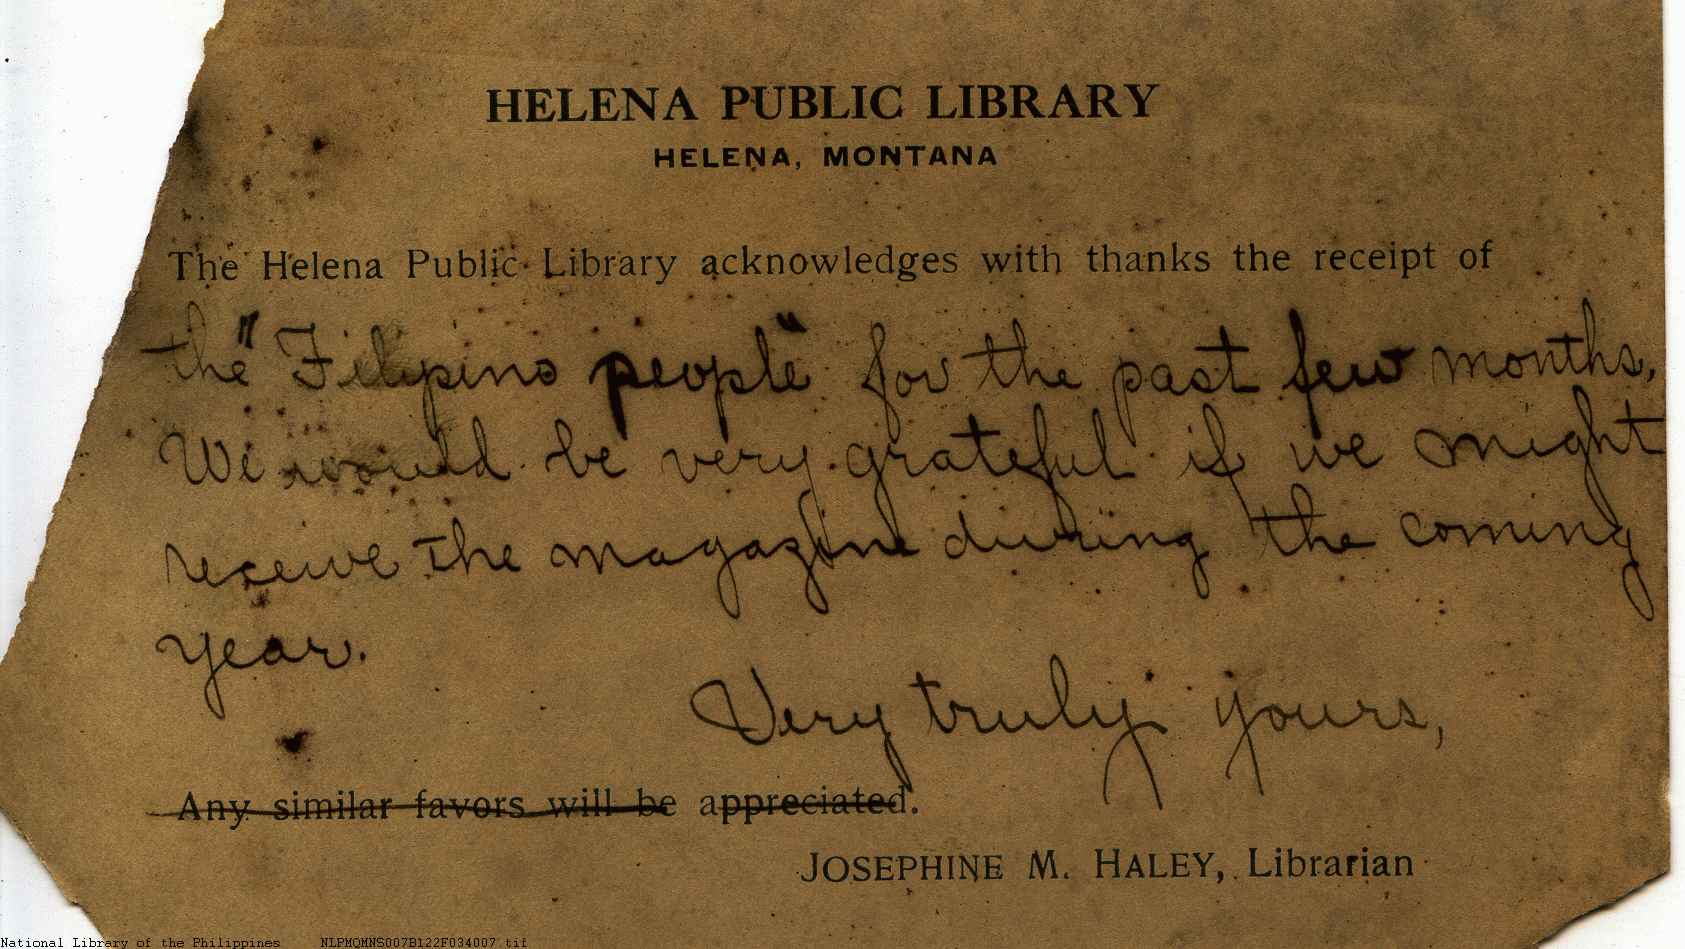 HELENA PUBLIC LIBRARY
HELENA, MONTANA
The Helena Public Library acknowledges with thanks the receipt of
the "Filipino people" for the past few months.
We would be very grateful if we might
receive the magazine during the coming
year.
Very truly yours,
Any similar favors will be appreciated.
JOSEPHINE M. HALEY, Librarian
National Library of the Philippines NLPMQMNS007B122F034007.tif